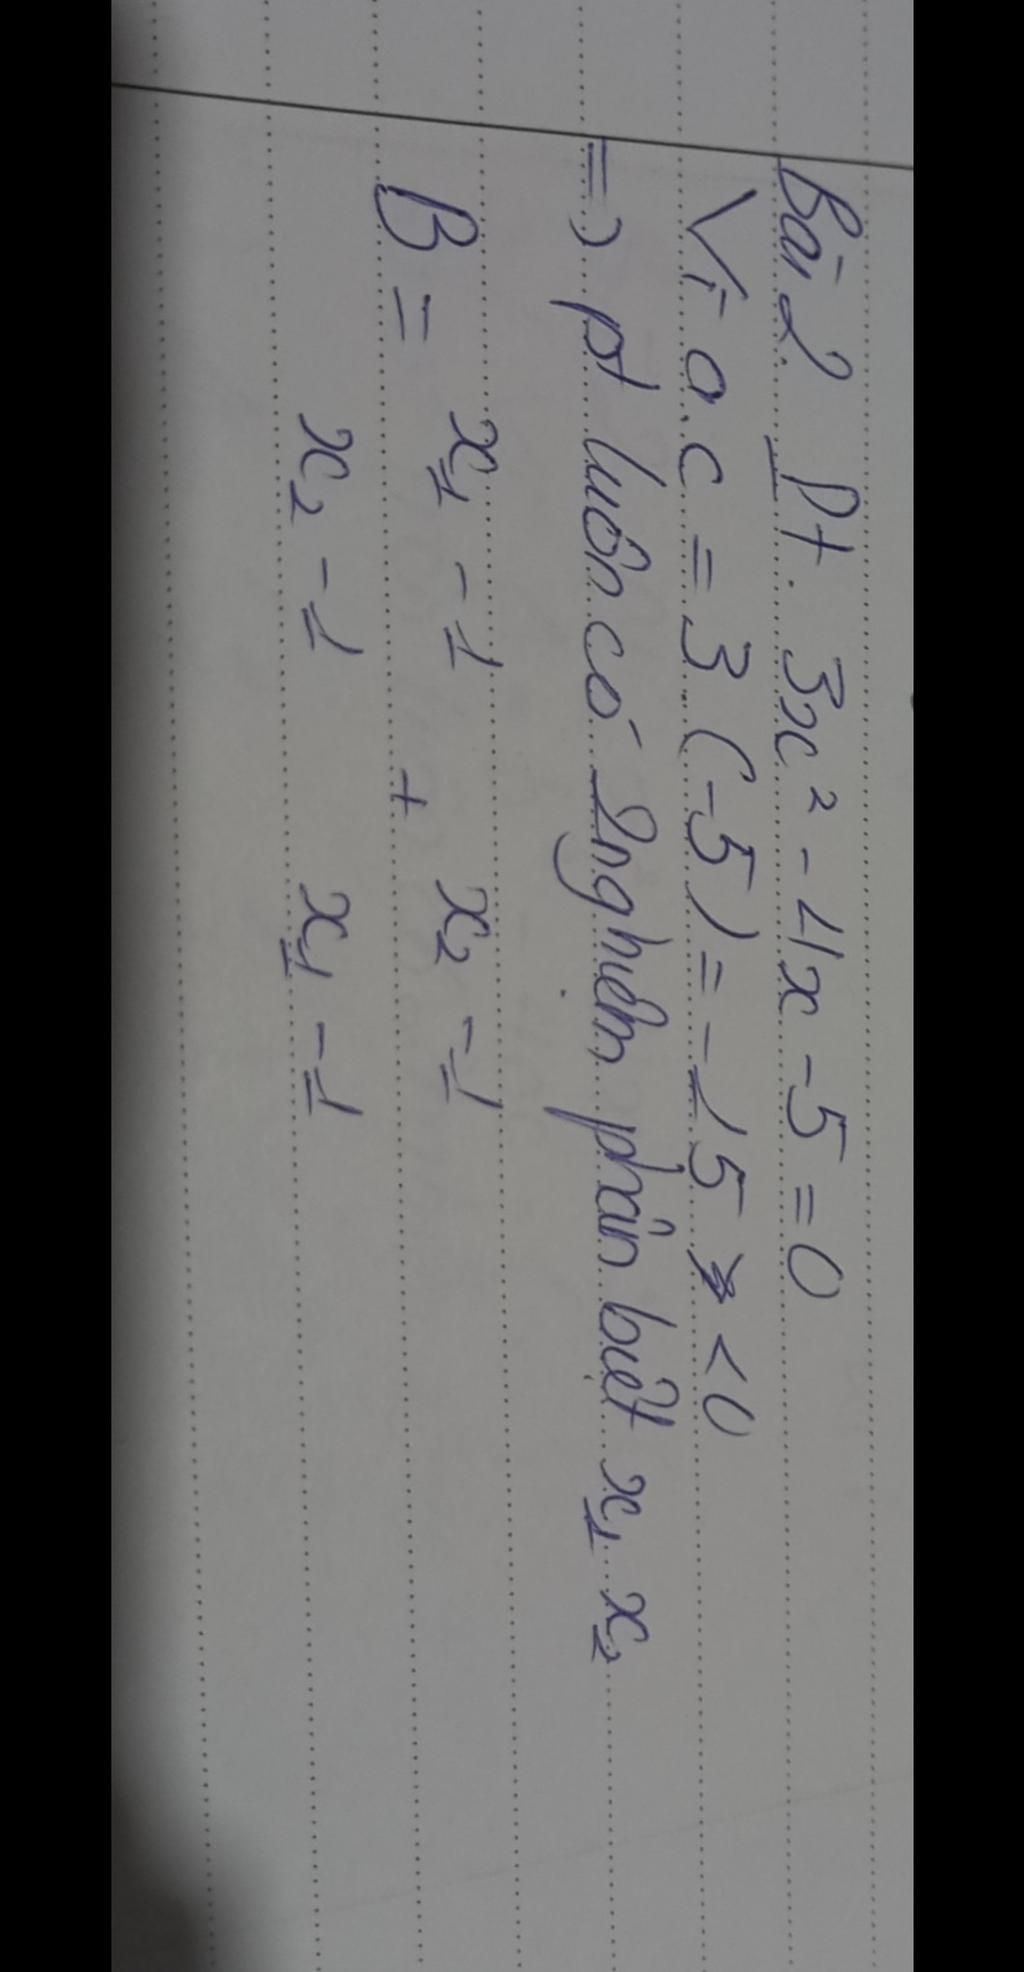 Bài 2 Pt. 3x² - 4x - 5 = 0
Vì a.c = 3.(-5) = -15 < 0
=> pt luôn có 2 nghiệm phân biệt x₁ x₂
x₁ - 1 x₂ - 1
B = +
x₂ - 1 x₁ - 1